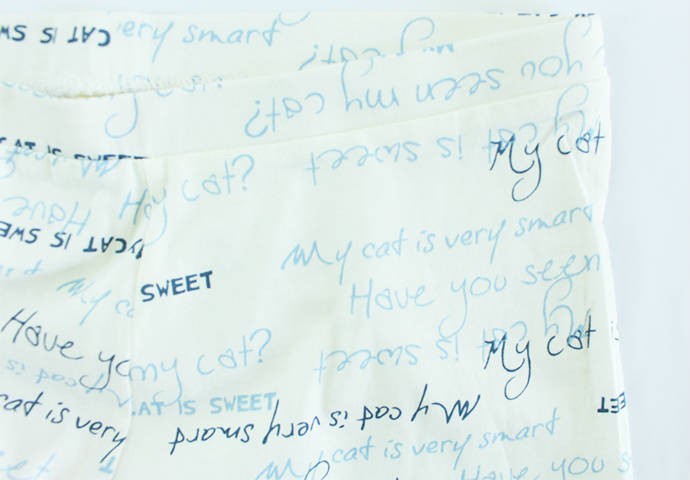 CAT IS SWE
ery smart
my cat?
you seen my cat?
CAT IS SWEET
My cat
My cat is sweet
My cat?
Have
CAT IS SWE
My cat is very smart
SWEET
Have you seen
My c
Have yo
my cat?
My cat is sweet
My cat
AT IS SWEET
cat is very
My cat is very smart
EET
My cat is very smart
Have you s